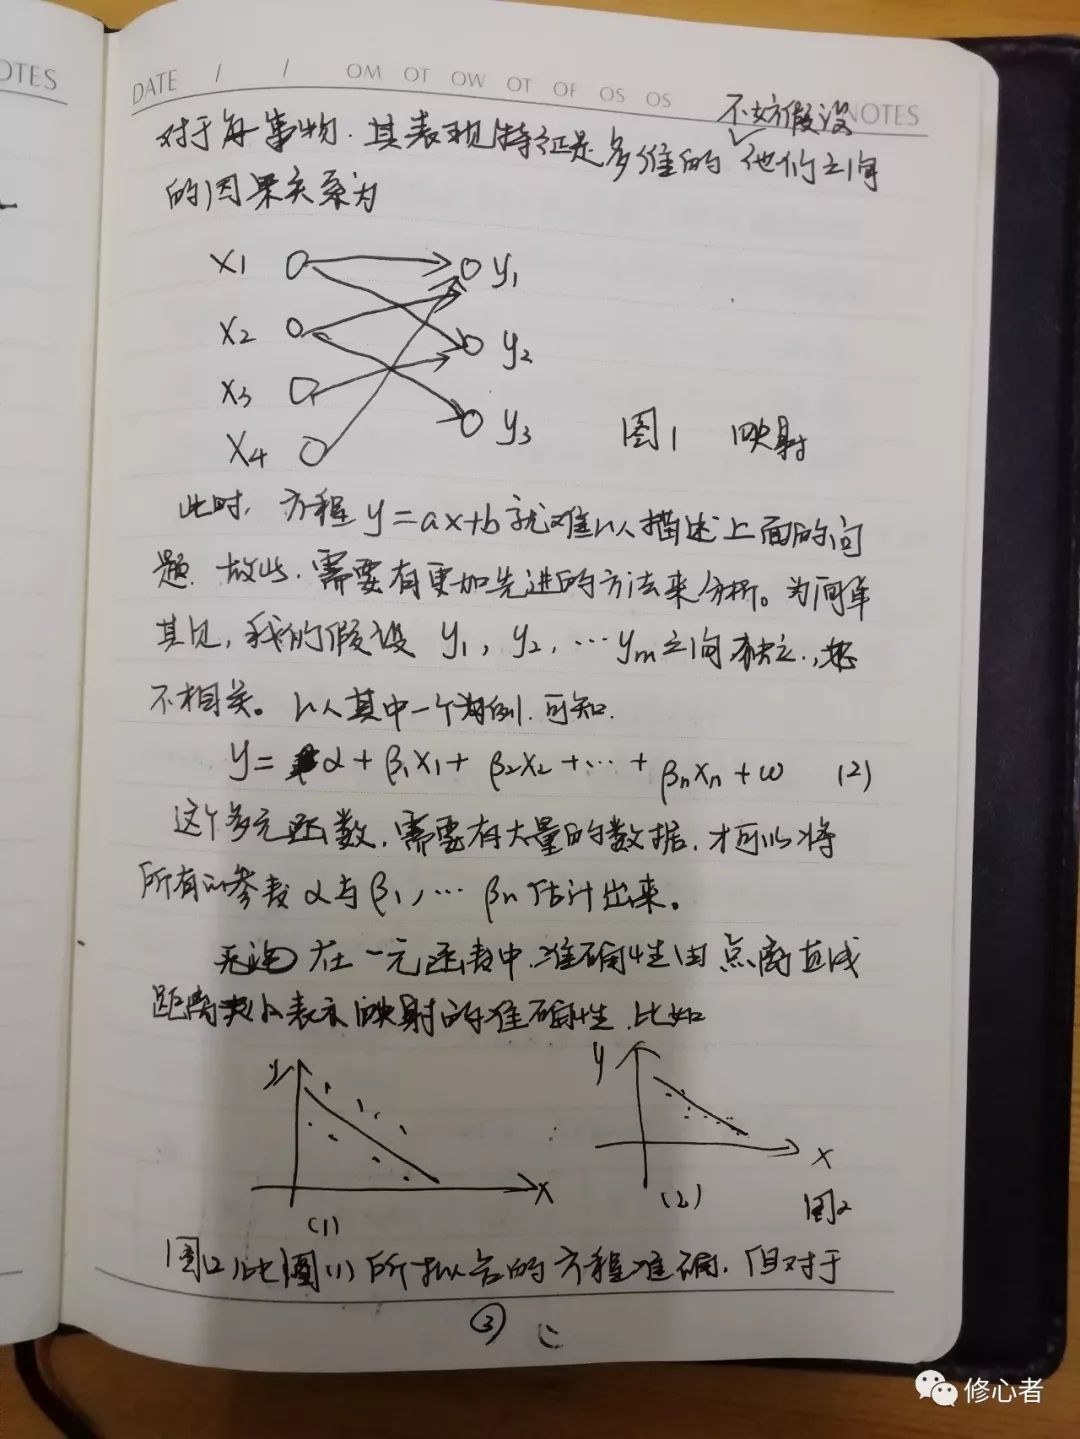 OTES
DATE / / OM OT OW OT OF OS OS NOTES
不妨假设
对于每事物.其表现特征是多维的 他们之间
的因果关系为
x1 y1
x2 y2
x3 y3
x4
图1 映射
此时,方程 y=ax+b 就难以描述上面的问
题.故此,需要有更加先进的方法来分析。为简单
其见,我们假设 y1, y2, …ym之间独立,
不相关。以其中一个为例.可知.
y= α + β1x1+ β2x2 +…+ βnxn + ω (2)
这个多元函数,需要有大量的数据,才可以将
所有的参数 α与β1,… βn估计出来。
在一元函数中,准确性由点离直线
距离 表示映射的准确性,比如
y x (1)
y x (2)
图2
图(2)比图(1)所拟合的方程准确.但对于
③
修心者